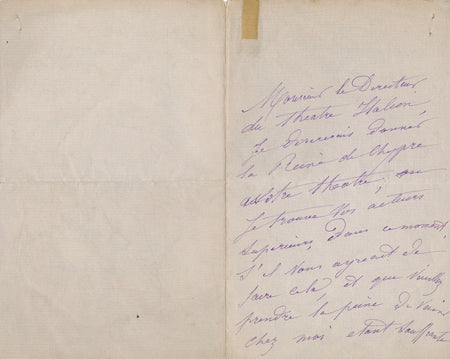 Monsieur le Directeur
du theatre Italien
Je desirerais donner
la Reine de Chypre
a votre theatre, ou
Je trouve vos acteurs
superieurs, dans ce moment,
S'il vous agreait de
faire cela, et que vouillez
prendre la peine de venir
chez moi etant souffrante